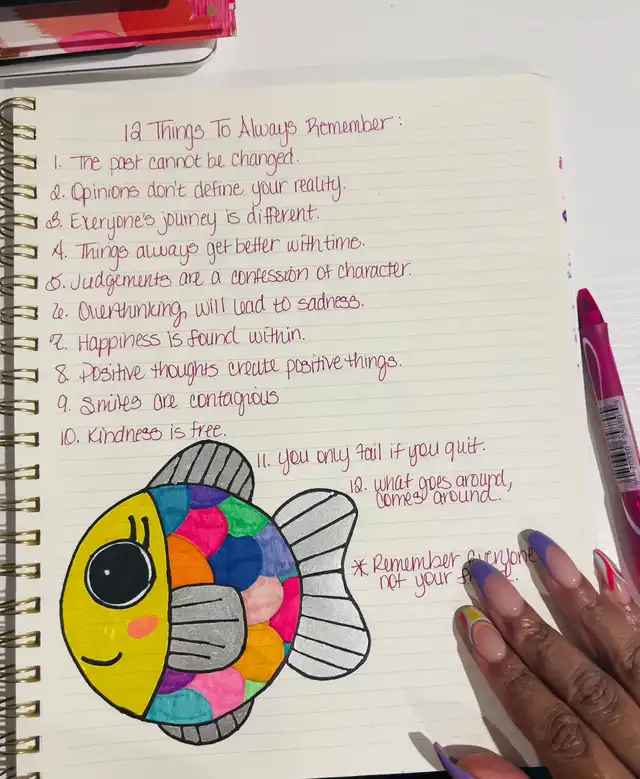 12 Things To Always Remember:
1. The past cannot be changed.
2. Opinions don't define your reality.
3. Everyone's journey is different.
4. Things always get better with time.
5. Judgements are a confession of character.
6. Overthinking, will lead to sadness.
7. Happiness is found within.
8. Positive thoughts create positive things.
9. Smiles are contagious
10. Kindness is free.
11. You only fail if you quit.
12. what goes around,
comes around.
* Remember Everyone
not your